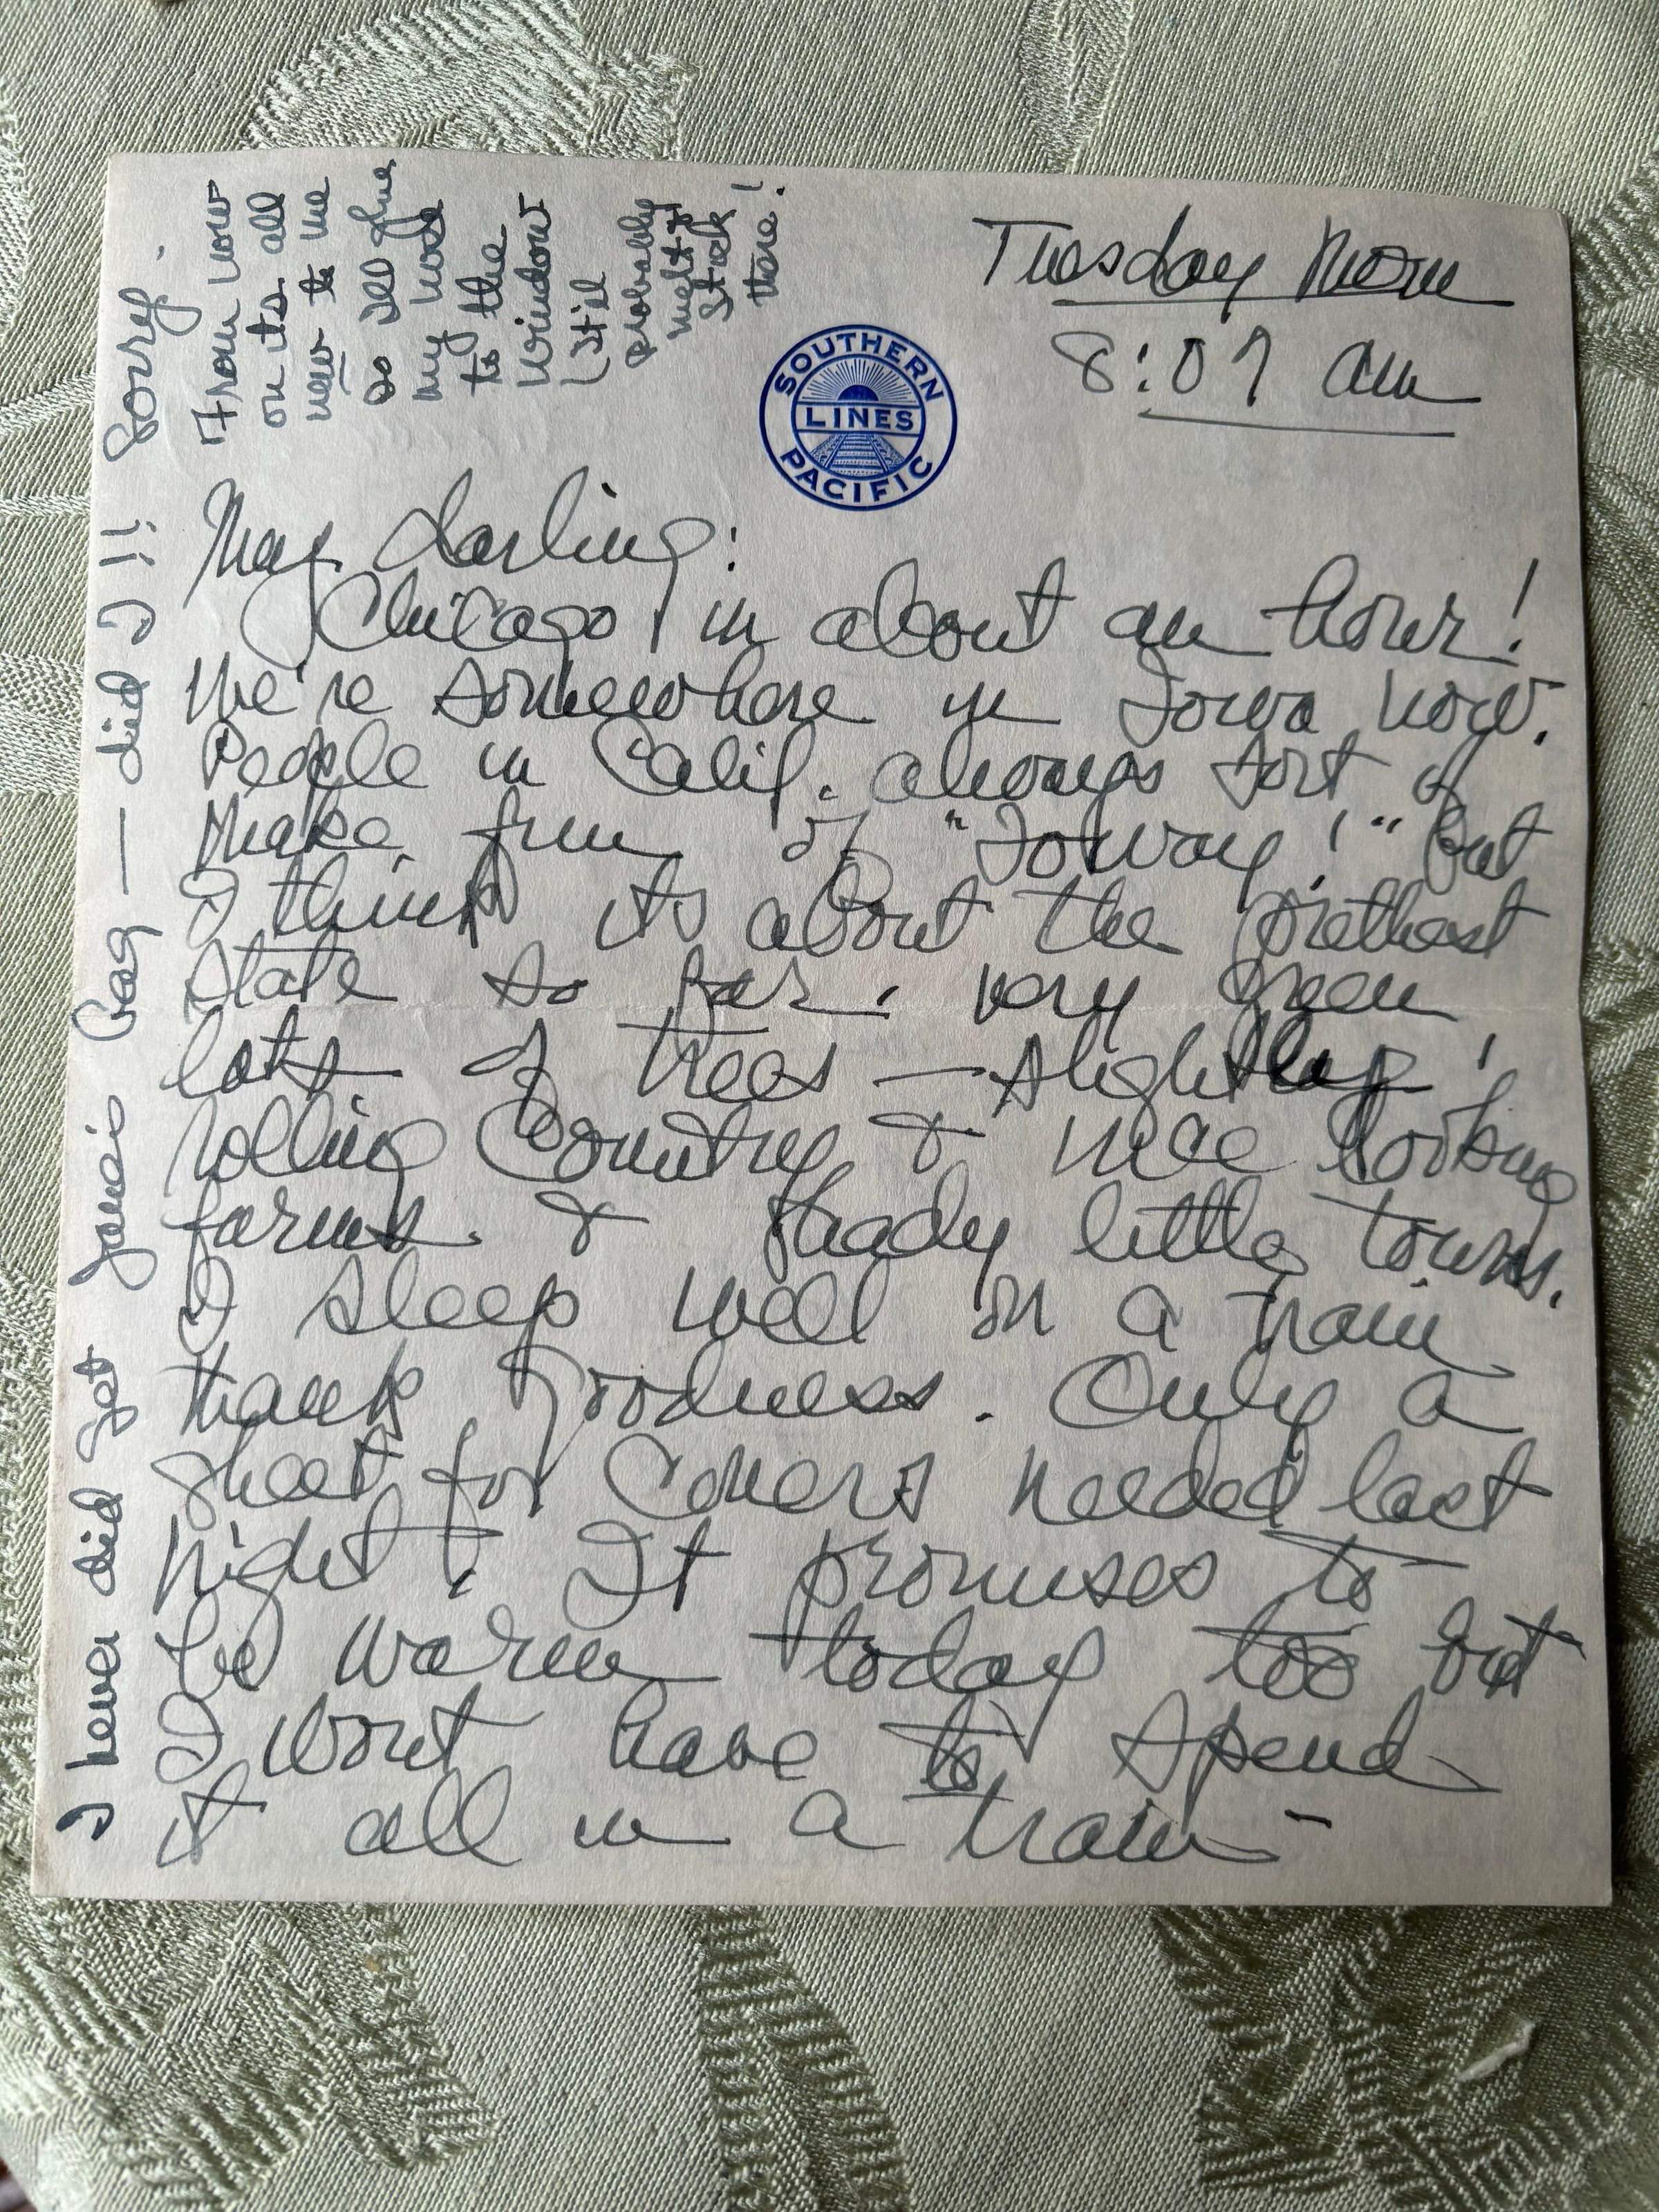 Tuesday Morn
8:07 am
SOUTHERN
LINES
PACIFIC
My darling:
Chicago in about an hour!
We're somewhere in Iowa now.
People in Calif. always sort of
make fun of "Ioway!" but
I think its about the prettiest
state so far. very green
lots of trees — slightly
rolling country & nice looking
farms. & shady little towns.
I sleep well on a train
thank goodness. Only a
sheet for covers needed last
night. It promises to
be warm today too but
I wont have to spend
it all in a train -
I never did get Janie's — did I!! Sorry.
From now
on its all
new to me
so Ill glue
my nose
to the
window
(It'll
probably
melt &
stick
there!